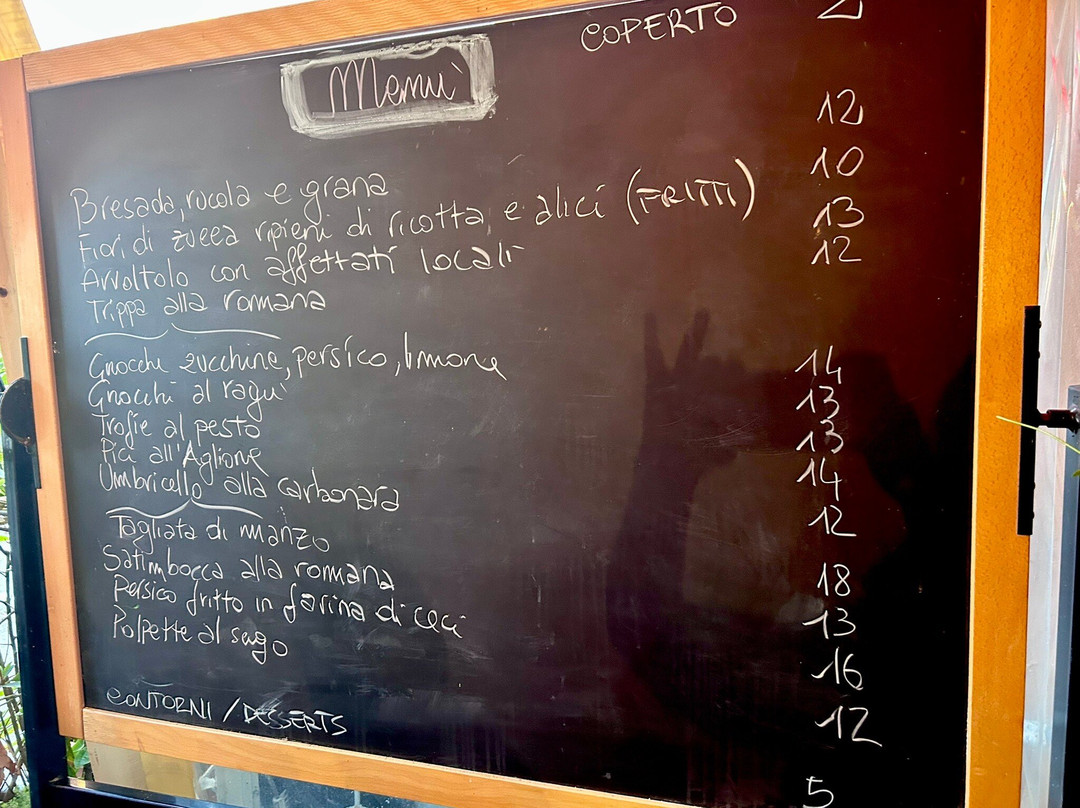 COPERTO 2
Menu'
Bresada, rucola e grana 12
Fiori di zucca ripieni di ricotta e alici (FRITTI) 10
Arvoltolo con affettati locali 13
Trippa alla romana 12
Gnocchi zucchine, persico, limone 14
Gnocchi al ragu' 13
Trofie al pesto 13
Pici all'Aglione 14
Umbricello alla carbonara 12
Tagliata di manzo 18
Satimbocca alla romana 13
Persico fritto in farina di ceci 16
Polpette al sugo 12
CONTORNI / DESSERTS 5